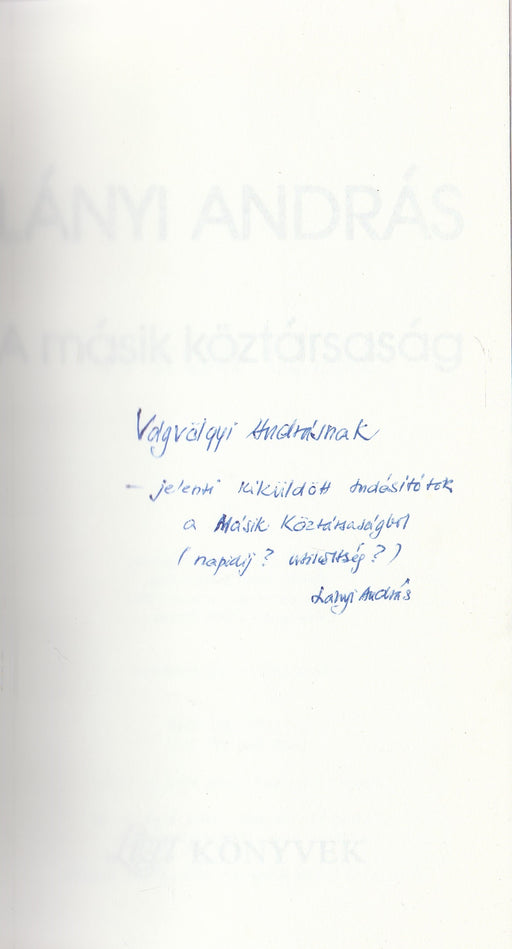 LÁNYI ANDRÁS
A másik köztársaság
Vágvölgyi Andrásnak
– jelenti kiküldött tudósítótok
a Másik Köztársaságból
(napidíj? útiköltség?)
Lányi András
Liget KÖNYVEK